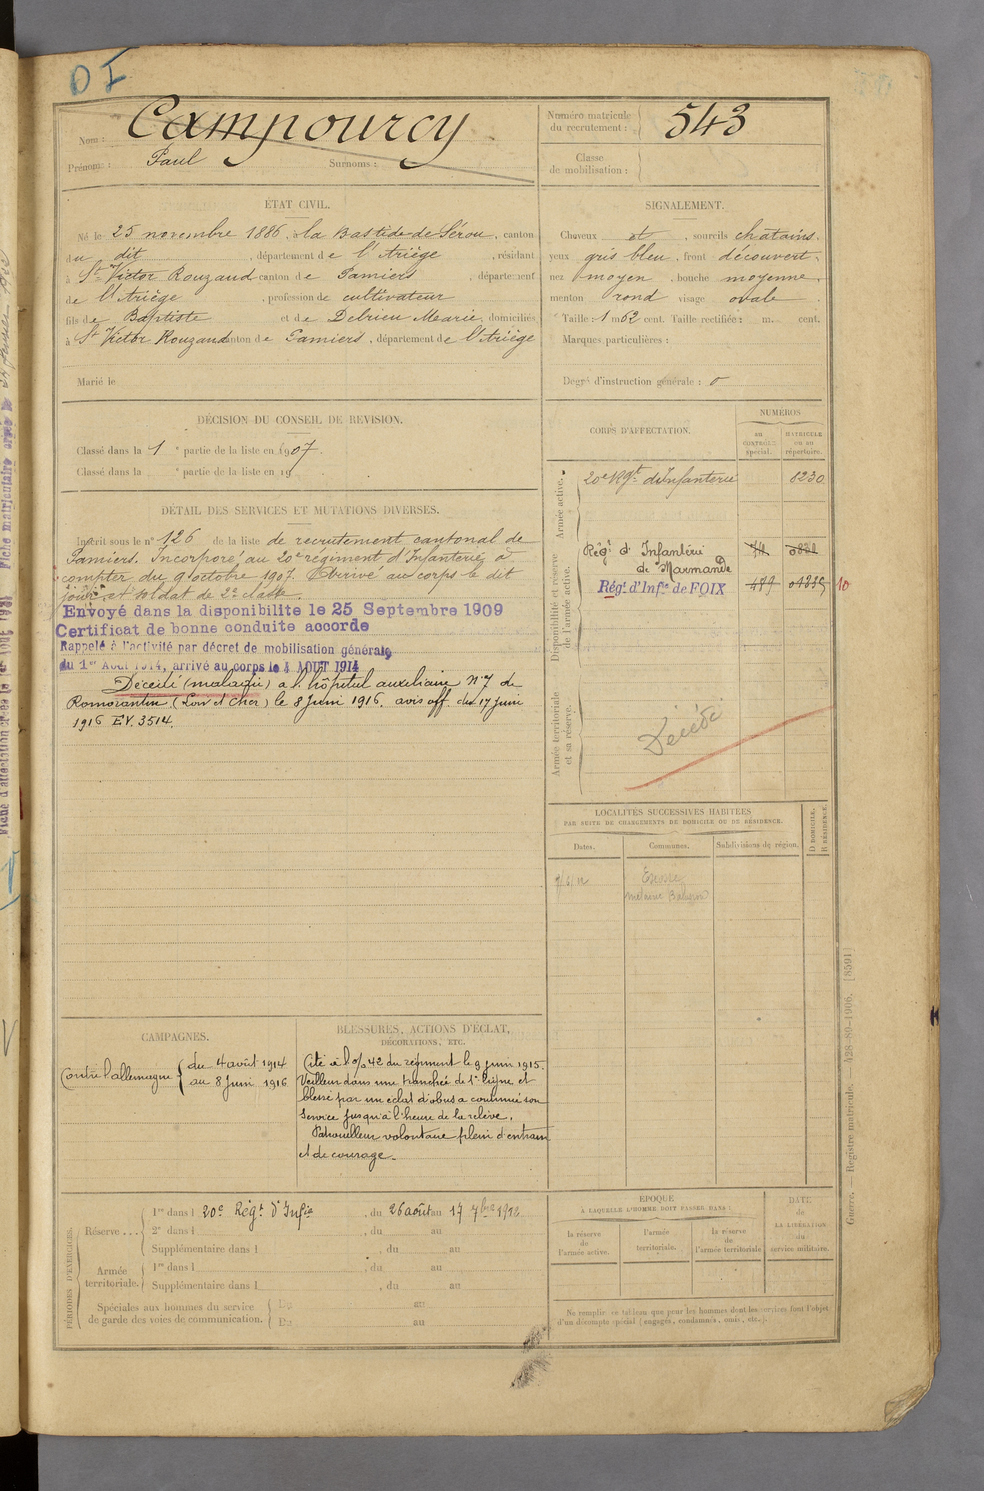 D I
Nom : Campourcy
Prénoms : Paul Surnoms :
Numéro matricule du recrutement : 543
Classe de mobilisation :
ÉTAT CIVIL.
Né le 25 novembre 1886, à la Bastide de Sérou, canton
du dit, département de l'Ariège, résidant
à St Victor Rouzaud canton de Pamiers, département
de l'Ariège, profession de cultivateur
fils de Baptiste et de Debrieu Marie, domiciliés
à St Victor Rouzaud canton de Pamiers, département de l'Ariège
Marié le
SIGNALEMENT.
Cheveux et, sourcils chatains,
yeux gris bleu, front découvert,
nez moyen, bouche moyenne,
menton rond visage ovale.
Taille : 1 m 62 cent. Taille rectifiée : m. cent.
Marques particulières :
Degré d'instruction générale : 0
DÉCISION DU CONSEIL DE REVISION.
Classé dans la 1e partie de la liste en 1907
Classé dans la e partie de la liste en 19
CORPS D'AFFECTATION.
NUMÉROS
au contrôle spécial.
matricule ou au répertoire.
Armée active.
20e Rgt d'Infanterie 8230
Disponibilité et réserve de l'armée active.
Régt d'Infanterie
de Marmande
Régt d'Infie de FOIX 10
Armée territoriale et sa réserve.
Décédé
DÉTAIL DES SERVICES ET MUTATIONS DIVERSES.
Inscrit sous le n° 126 de la liste de recrutement cantonal de
Pamiers. Incorporé au 20e régiment d'Infanterie à
compter du 9 octobre 1907. Arrivé au corps le dit
jour et soldat de 2e classe.
Envoyé dans la disponibilite le 25 Septembre 1909
Certificat de bonne conduite accorde
Rappelé à l'activité par décret de mobilisation générale
du 1er Août 1914, arrivé au corps le 4 AOUT 1914
Décédé (maladie) a l'hôpital auxiliaire N°7 de
Romorantin (Loir et Cher) le 8 Juin 1916. avis off. du 17 juin
1916 EV. 3514.
LOCALITÉS SUCCESSIVES HABITÉES
PAR SUITE DE CHANGEMENTS DE DOMICILE OU DE RÉSIDENCE.
Dates. Communes. Subdivisions de région. D DOMICILE. R RÉSIDENCE.
CAMPAGNES.
Contre l'allemagne du 4 août 1914
au 8 Juin 1916
BLESSURES, ACTIONS D'ÉCLAT,
DÉCORATIONS, ETC.
Cité à l'o/ 42 du régiment le 9 juin 1915.
Veilleur dans une tranchée de 1e ligne et
blessé par un eclat d'obus a continué son
service jusqu'à l'heure de la relève.
Patrouilleur volontaire plein d'entrain
et de courage.
PÉRIODES D'EXERCICES.
Réserve ... 1re dans l 20e Régt d'Infie, du 26 août au 17 7bre 1912
2e dans l, du au
Supplémentaire dans l, du au
Armée territoriale. 1re dans l, du au
Supplémentaire dans l, du au
Spéciales aux hommes du service Du au
de garde des voies de communication. Du au
ÉPOQUE
À LAQUELLE L'HOMME DOIT PASSER DANS :
la réserve de l'armée active.
l'armée territoriale.
la réserve de l'armée territoriale
DATE de LA LIBÉRATION du service militaire.
Ne remplir ce tableau que pour les hommes dont les services font l'objet
d'un décompte spécial (engagés, condamnés, omis, etc.).
Guerre. — Registre matricule. — 428-89-1906. [8591]